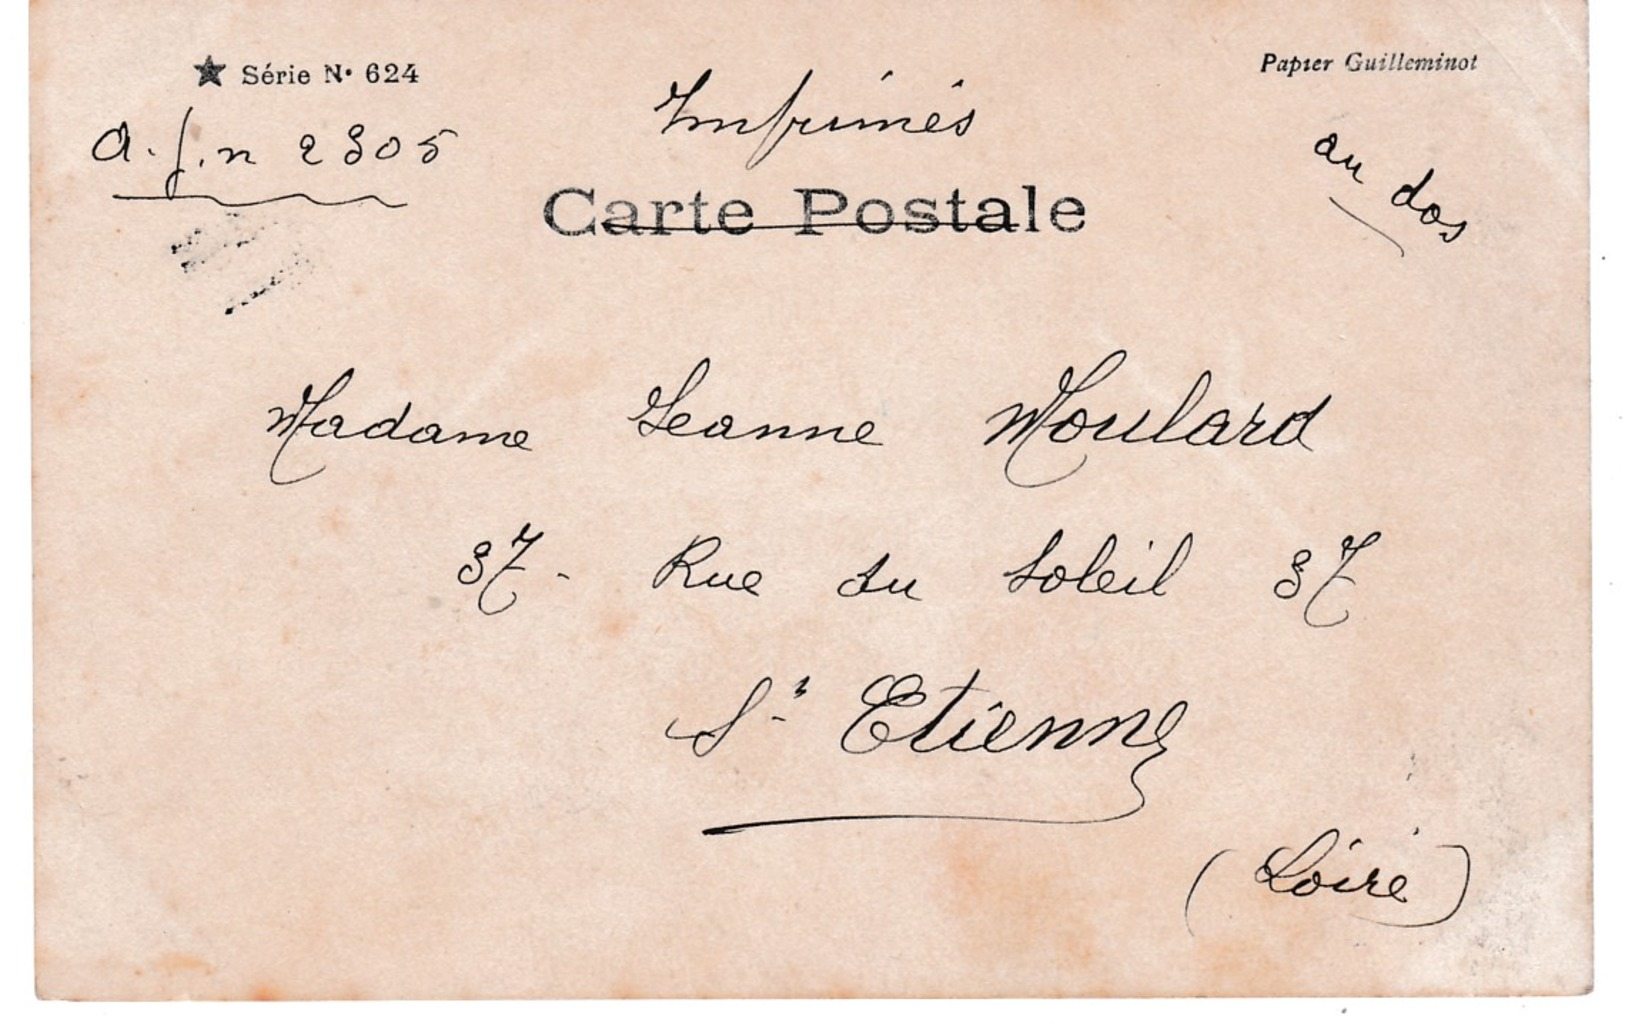 ★ Série N° 624
Papier Guilleminot
Imprimés
a. f. n 2305
au dos
Carte Postale
Madame Jeanne Moulard
37- Rue du Soleil 37
St Etienne
(Loire)